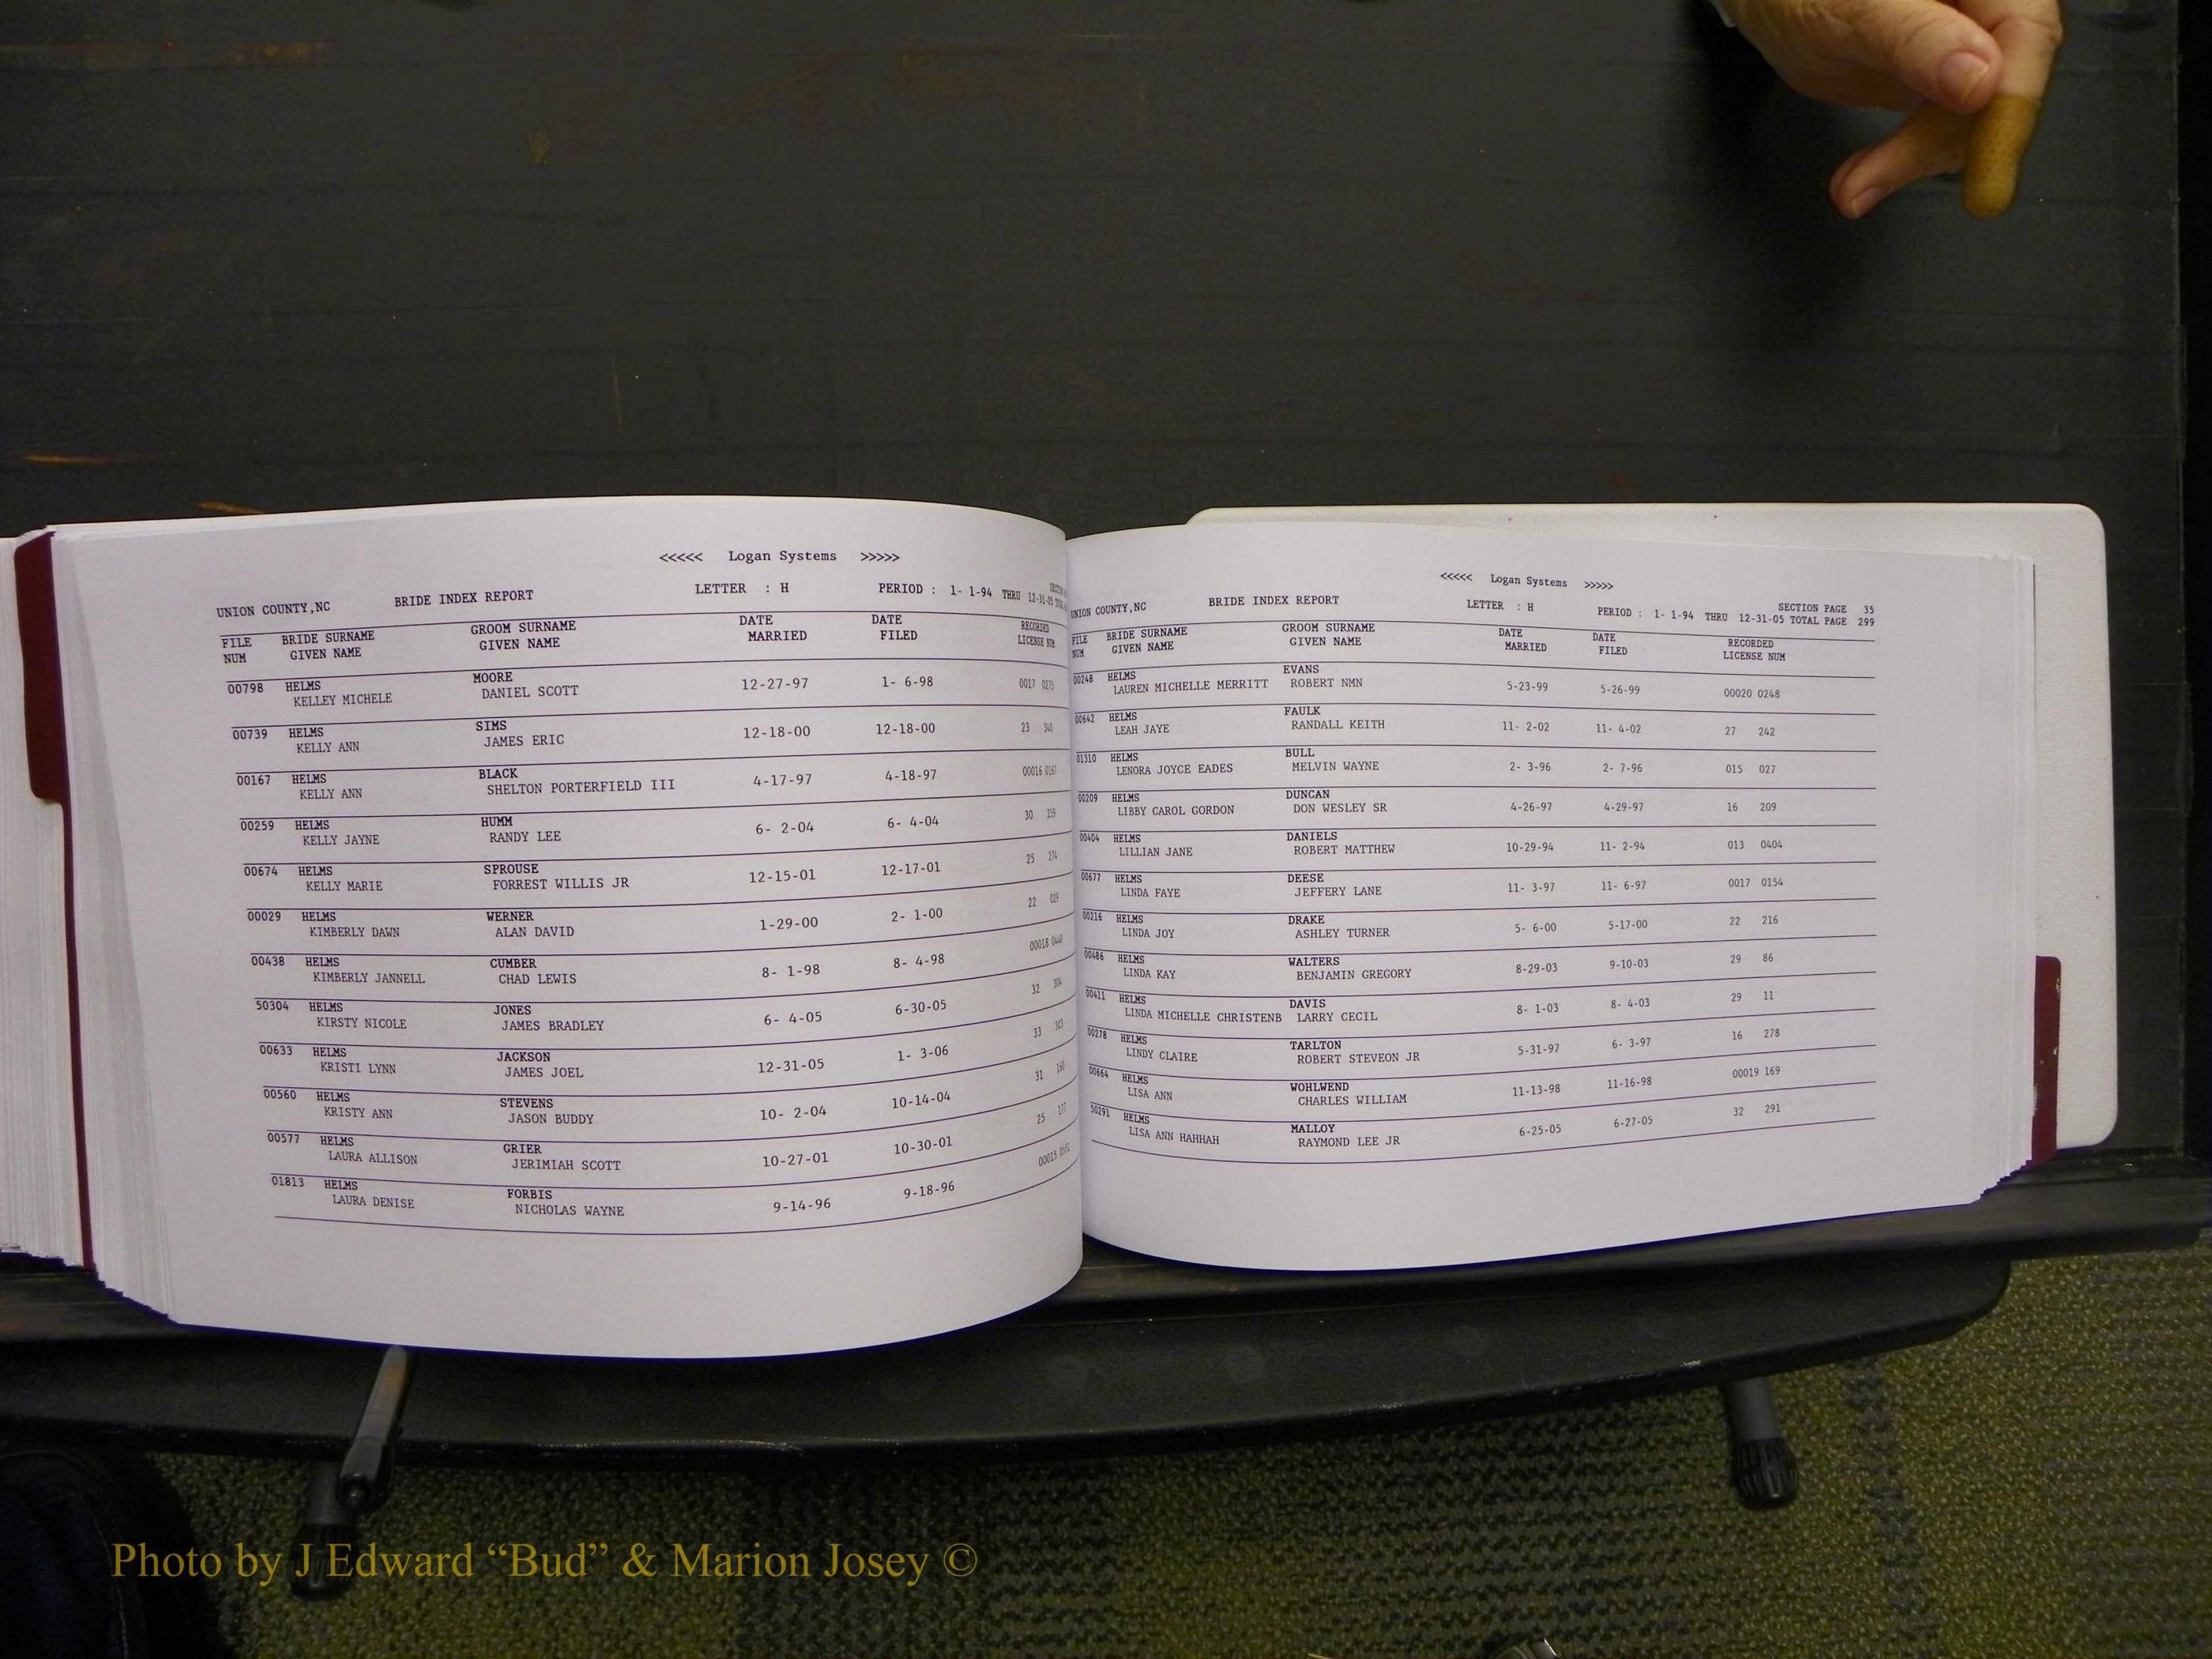 <<<<< Logan Systems >>>>>
UNION COUNTY,NC BRIDE INDEX REPORT LETTER : H PERIOD : 1- 1-94 THRU 12-31-05
FILE BRIDE SURNAME GROOM SURNAME DATE DATE RECORDED
NUM GIVEN NAME GIVEN NAME MARRIED FILED LICENSE NUM
00798 HELMS MOORE 12-27-97 1- 6-98 0017 0275
KELLEY MICHELE DANIEL SCOTT
00739 HELMS SIMS 12-18-00 12-18-00 23 340
KELLY ANN JAMES ERIC
00167 HELMS BLACK 4-17-97 4-18-97 00016 0167
KELLY ANN SHELTON PORTERFIELD III
00259 HELMS HUMM 6- 2-04 6- 4-04 30 259
KELLY JAYNE RANDY LEE
00674 HELMS SPROUSE 12-15-01 12-17-01 25 274
KELLY MARIE FORREST WILLIS JR
00029 HELMS WERNER 1-29-00 2- 1-00 22 029
KIMBERLY DAWN ALAN DAVID
00438 HELMS CUMBER 8- 1-98 8- 4-98 00018 0440
KIMBERLY JANNELL CHAD LEWIS
50304 HELMS JONES 6- 4-05 6-30-05 32 304
KIRSTY NICOLE JAMES BRADLEY
00633 HELMS JACKSON 12-31-05 1- 3-06 33 303
KRISTI LYNN JAMES JOEL
00560 HELMS STEVENS 10- 2-04 10-14-04 31 160
KRISTY ANN JASON BUDDY
00577 HELMS GRIER 10-27-01 10-30-01 25 177
LAURA ALLISON JERIMIAH SCOTT
01813 HELMS FORBIS 9-14-96 9-18-96 00015
LAURA DENISE NICHOLAS WAYNE
<<<<< Logan Systems >>>>>
SECTION PAGE 35
UNION COUNTY,NC BRIDE INDEX REPORT LETTER : H PERIOD : 1- 1-94 THRU 12-31-05 TOTAL PAGE 299
FILE BRIDE SURNAME GROOM SURNAME DATE DATE RECORDED
NUM GIVEN NAME GIVEN NAME MARRIED FILED LICENSE NUM
00248 HELMS EVANS 5-23-99 5-26-99 00020 0248
LAUREN MICHELLE MERRITT ROBERT NMN
00642 HELMS FAULK 11- 2-02 11- 4-02 27 242
LEAH JAYE RANDALL KEITH
01310 HELMS BULL 2- 3-96 2- 7-96 015 027
LENORA JOYCE EADES MELVIN WAYNE
00209 HELMS DUNCAN 4-26-97 4-29-97 16 209
LIBBY CAROL GORDON DON WESLEY SR
00404 HELMS DANIELS 10-29-94 11- 2-94 013 0404
LILLIAN JANE ROBERT MATTHEW
00677 HELMS DEESE 11- 3-97 11- 6-97 0017 0154
LINDA FAYE JEFFERY LANE
00216 HELMS DRAKE 5- 6-00 5-17-00 22 216
LINDA JOY ASHLEY TURNER
00486 HELMS WALTERS 8-29-03 9-10-03 29 86
LINDA KAY BENJAMIN GREGORY
00411 HELMS DAVIS 8- 1-03 8- 4-03 29 11
LINDA MICHELLE CHRISTENB LARRY CECIL
00278 HELMS TARLTON 5-31-97 6- 3-97 16 278
LINDY CLAIRE ROBERT STEVEON JR
00664 HELMS WOHLWEND 11-13-98 11-16-98 00019 169
LISA ANN CHARLES WILLIAM
50291 HELMS MALLOY 6-25-05 6-27-05 32 291
LISA ANN HAHHAH RAYMOND LEE JR
Photo by J Edward “Bud” & Marion Josey ©